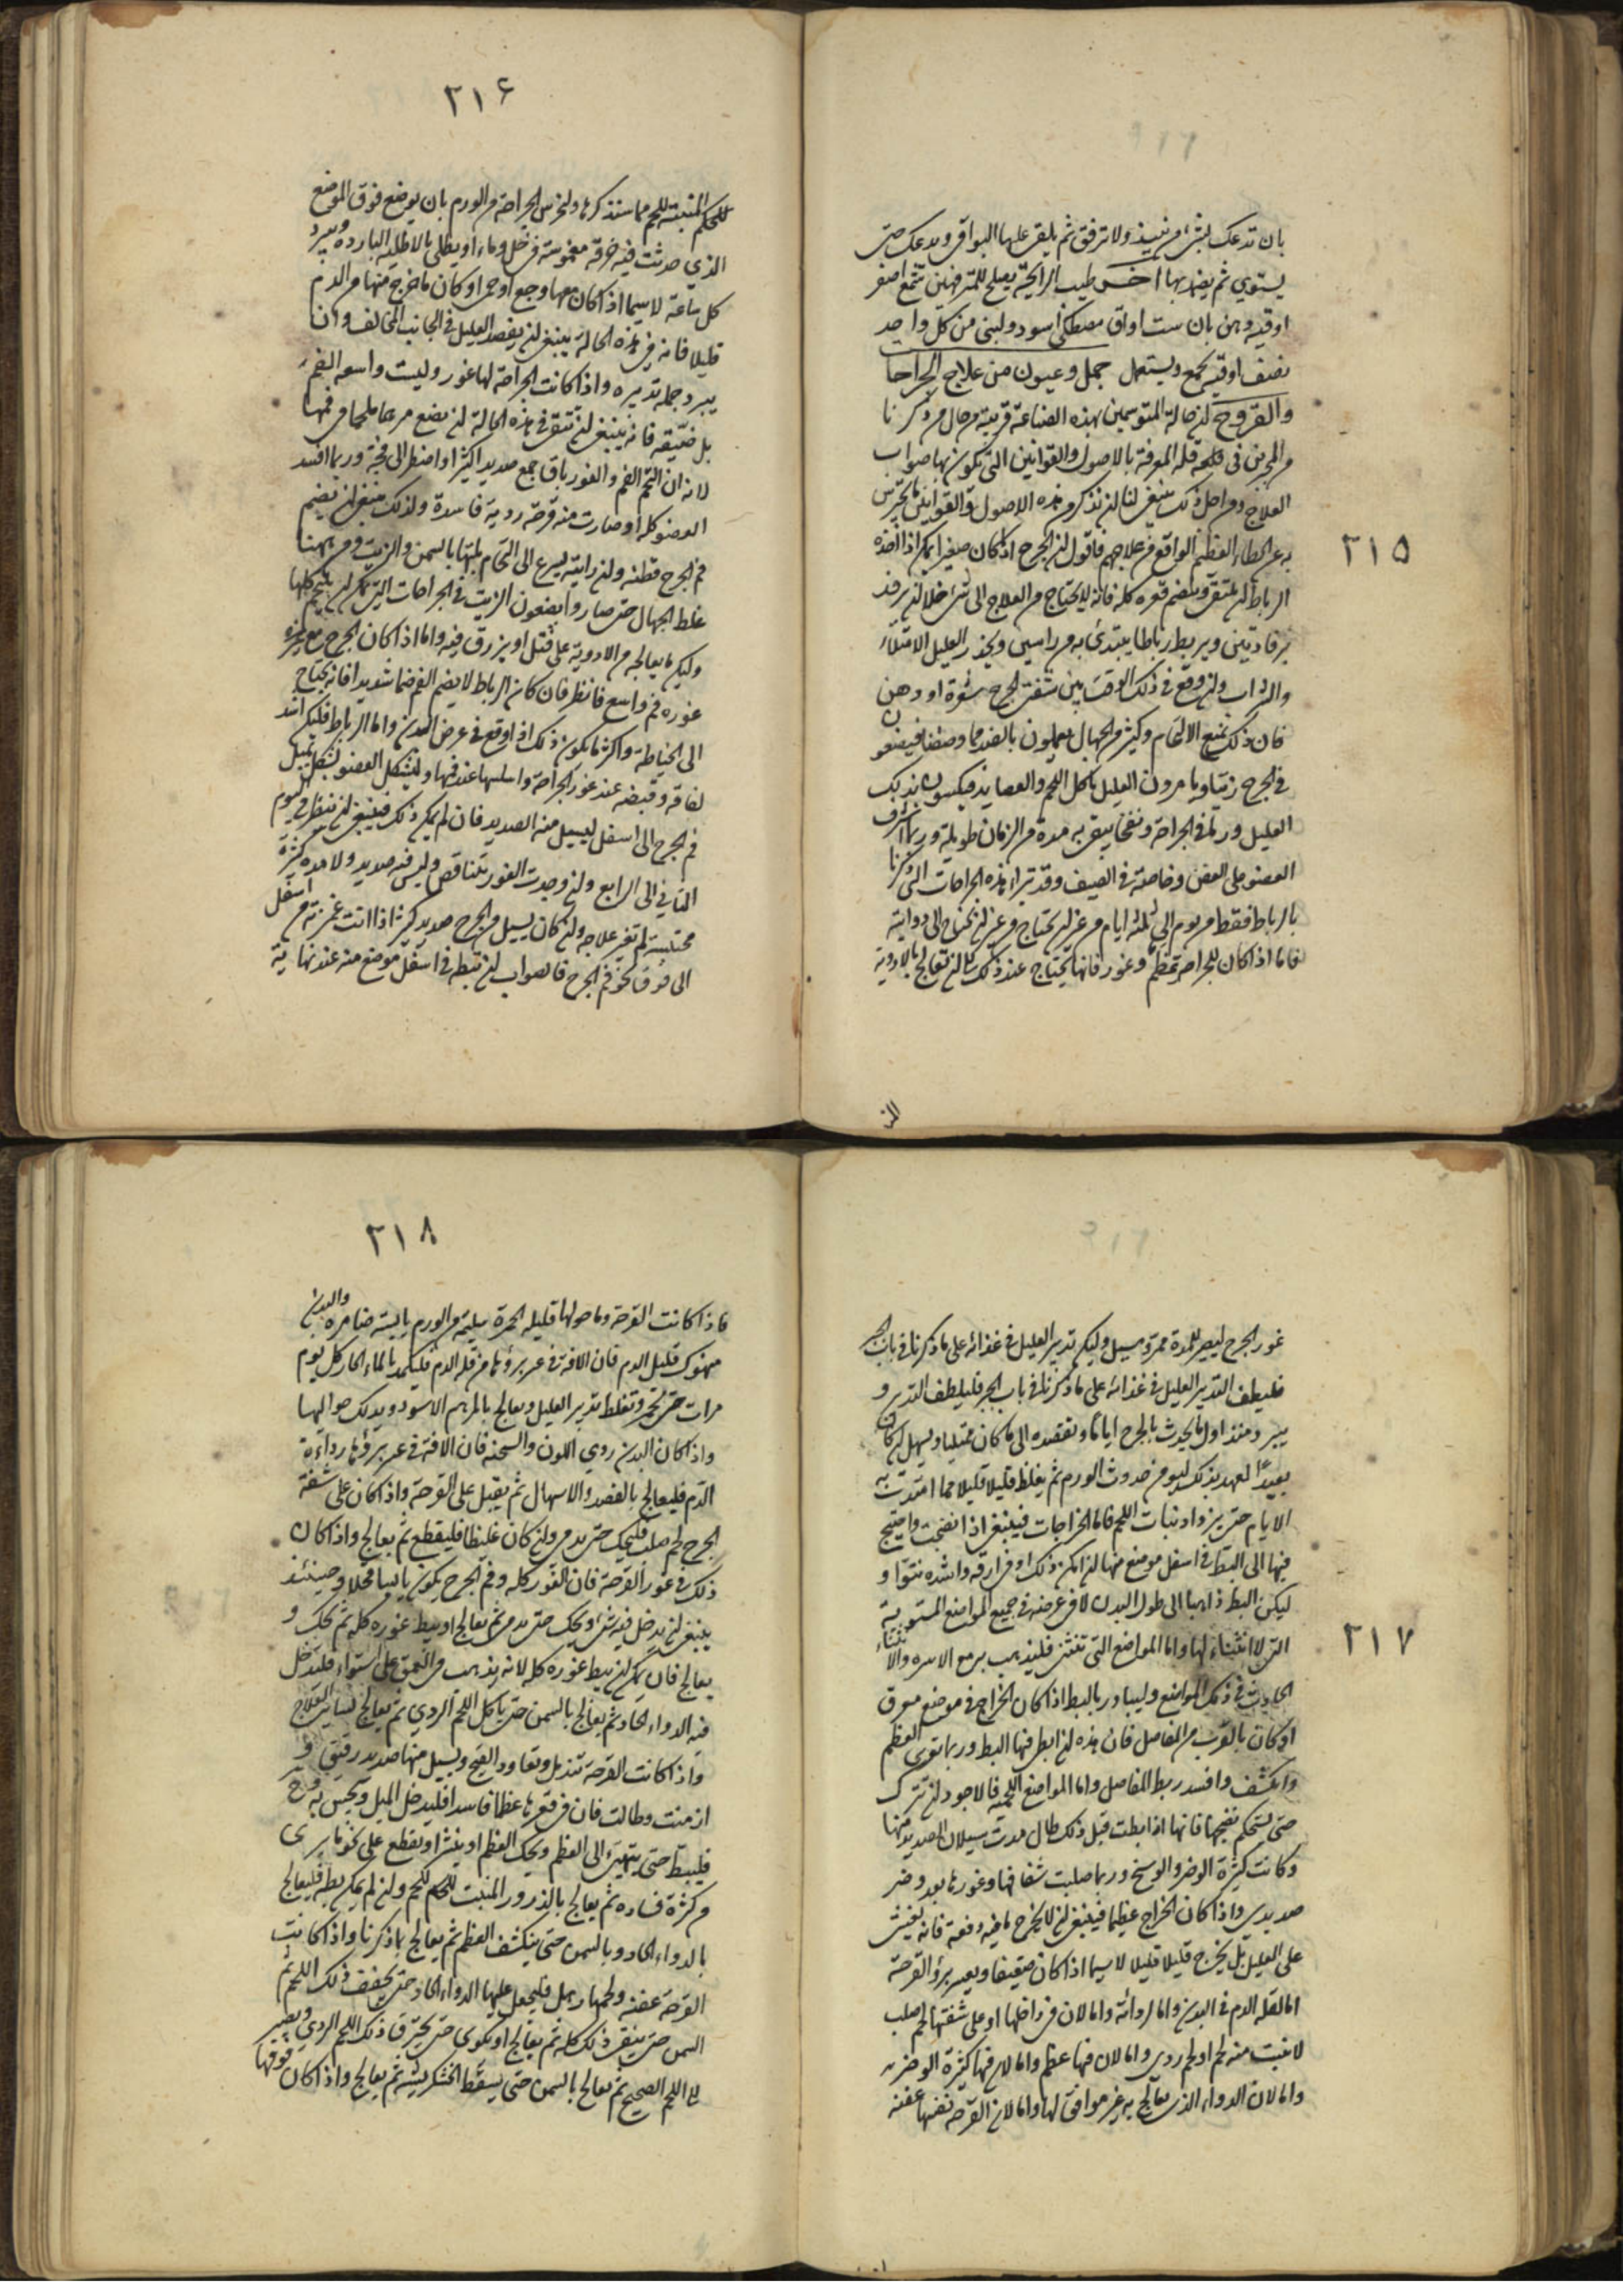 ٢١٥
بان تدعك بشئ من نبيذ ولا ترفق ثم يلقى عليها البواقى ويدعك حتى
يستوي ثم يضمد بها آخر طيب الرايحة يصلح للمترفهين شمع اصفر
اوقيه دهن بان ست اواق مصطكى اسود ولبنى من كل واحد
نصف اوقيه يجمع ويستعمل جمل وعيون من علاج الجراحا
والقروح ان حالة المتوسمين بهذه الصناعة قريبة من حال من ذكرنا
من المجبرين فى قلة المعرفة بالاصول والقوانين التى تكون بها صواب
العلاج ومن اجل ذلك ينبغى لنا ان نذكر من هذه الاصول والقوانين ما يحترس
به عن الخطاء العظيم الواقع من علاجهم فاقول ان الجرح اذا كان صغيرا يمكن اذا اخذه
الرباط ان يلتقى وينضم قعره كله فانه لا يحتاج من العلاج الى شئ خلا ان يرفد
برفادتين ويربط رباطا يبتدئ به من راسين ويحذر العليل الامتلاء
والشراب وان وقع فى ذلك الوقت بين شفتى الجرح شعرة او دهن
فان ذلك يمنع الالتحام وكثير من الجهال يعملون بالضد مما وصفنا فيضعون
فى الجرح زيتا ويامرون العليل باكل اللحم والعصايد فيكسبون بذلك
العليل ورما فى الجراحة ونفخا يبقى به مدة من الزمان طويلة وربما اشرف
العضو على العفن وخاصة فى الصيف وقد تبراء هذه الجراحات التى ذكرنا
بالرباط فقط من يوم الى ثلثة ايام من غير ان يحتاج من غير ان نحتاج الى دواية
فاما اذا كان للجراحة عظم وغور فانها يحتاج عند ذلك الى ان تعالج بالادوية
٢١٤
للحم المنبتة للحم مما سنذكرها ولنحرس الجراحة من الورم بان يوضع فوق الموضع
الذي حدثت فيه خرقة مغموسة فى خل وماء او يطلى بالاطليه البارده ويبرد
كل ساعة لا سيما اذا كان معها وجع او حمى او كان ما خرج منها من الدم
قليلا فانه فى هذه الحالة ينبغى ان يفصد العليل فى الجانب المخالف وان
يبرد جملة تدبيره واذا كانت الجراحة لها غور وليست واسعه الفم
بل ضيقه فانه ينبغى ان تتقى فى هذه الحالة ان نضع مرهما ملحما فى فمها
لانه ان التحم الفم والغور باق جمع صديدا كثيرا واضطر الى فتحه وربما افسد
العضو كله او صارت منه قرحة ردية فاسدة ولذلك ينبغى ان يضم
فم الجرح قطنه وان رايته يسرع الى التحام بلتها بالسمن والزيت ومن ههنا
غلط الجهال حتى صاروا يضعون الزيت فى الجراحات التى يمكن ان يلتحم كلها
وليكن ما يعالجه من الادوية على فتل او يزرق فيه واما اذا كان الجرح مع
غوره فم واسع فانظر فان كان الرباط لا يضم الفم ضما شديدا فانه يحتاج
الى الخياطة واكثر ما يكون ذلك اذا وقع فى عرض البدن واما الرباط فليكن اشد
لفافه وقبضه عند غور الجراحة واسلسها عند فمها وليشكل العضو بشكل يميل
فم الجرح الى اسفل ليسيل منه الصديد فان لم يمكن ذلك فينبغى ان ننظر فى اليوم
الثاني الى الرابع وان وجدت الغور يتناقص وليس فيه صديد ولا مده كثيرة
محتبسة لم تغير علاجه وان كان يسيل من الجرح صديد كثير اذا انت غمزته من اسفل
الى فوق نحو فم الجرح فالصواب ان تبط فى اسفل موضع منه عند نهاية
٢١٧
غور الجرح ليصير للمدة ممر ومسيل وليكن تدبير العليل فى غذائه على ما ذكرنا فى باب الجبر
فليطف التدبير العليل فى غذائه على ما ذكرنا فى باب الجبر فليلطف التدبير و
يبرد منذ اول ما يحدث بالجرح اياما وتفقده الى ما كان ممتليا ويسهل ان كان
بعيد العهد بذلك ليومن حدوث الورم ثم يغلظ قليلا قليلا مما امتدت به
الايام حتى يزداد نبات اللحم فاما الخراجات فينبغى اذا نضجت واحتيج
فيها الى البط فى اسفل موضع منها ان امكن ذلك او فى ارقه واشده نتوا و
ليكن البط ذاهبا الى طول البدن لا فى عرضه فى جميع المواضع المستوية
التى لا انثناء لها واما المواضع التى تنثنى فليذهب به مع الاسره والانثناء
الحادث فى ذلك المواضع وليبادر بالبط اذا كان الخراج فى موضع معرق
او كان بالقرب من المفاصل فان هذه ان ابطئ فيها البط وربما توى العظم
وانكشف وافسد ربط المفاصل واما المواضع اللحمية فالاجود ان تترك
حتى يستحكم نضجها فانها اذا بطت قبل ذلك طال مدت سيلان الصديد منها
وكانت كثيرة الوضر والوسخ وربما صلبت شفاهها وغورها بعد وضر
صديدى واذا كان الخراج عظيما فينبغى ان لا يخرج ما فيه دفعة فانه يغشى
على العليل بل يخرج قليلا قليلا لا سيما اذا كان ضعيفا ويعسر برؤ القرحة
اما لقلة الدم فى البدن واما لردائه واما لان فى داخلها او على شفتها لحم صلب
لا نبت منه لحم او لحم ردى واما لان فيها عظم واما لان فيها كثيرة الوضر
واما لان الدواء الذى يعالج به غير موافق لها واما لان القرحة نفسها عفنه
٢١٨
فاذا كانت القرحة وما حولها قليلة الحمرة سليمة من الورم يابسة ضامره والبدن
منهوك قليل الدم فان الافه فى عسر برؤها من قلة الدم فليكمد بالماء الحار كل يوم
مرات حتى تحمر وتغلظ تدبير العليل ويعالج بالمرهم الاسود ويدلك حواليها
واذا كان البدن ردي اللون والسحنه فان الافة فى عسر برؤها رداءة
الدم فليعالج بالفصد والاسهال ثم يقبل على القرحة واذا كان على شفة
الجرح لحم صلب فليحك حتى يدمى وان كان غليظا فليقطع ثم يعالج واذا كان
ذلك فى غور القرحة فان الغور كله وفم الجرح يكون يابسا قحلا وحينئذ
ينبغى ان يدخل فيه شئ ويحك حتى يدمى ثم يعالج او يبط غوره كله ثم يحك و
يعالج فان لم يمكن ان يبط غوره كله لانه يذهب فى العمق على استواء فليدخل
فيه الدواء الحاد ثم يعالج بالسمن حتى ياكل اللحم الردي ثم يعالج لساير العلاج
واذا كانت القرحة تندمل وتعاود القيح ويسيل منها صديد رقيق و
ازمنت وطالت فان فى قعرها عظما فاسدا فليدخل الميل ويجس به
فليبط حتى ينتهى الى العظم ويحك العظم او ينشر او يقطع على نحو ما يرى
من كثرة فساده ثم يعالج بالذرور المنبت للحم وان لم يمكن بطه فليعالج
بالدواء الحاد وبالسمن حتى ينكشف العظم ثم يعالج بما ذكرنا واذا كانت
القرحة عفنه ولحمها رهل فليجعل عليها الدواء الحاد حتى يجفف ذلك اللحم ثم
السمن حتى ينقى ذلك كله ثم يعالج او يكوى حتى يحترق ذلك اللحم الردي ويصير
الى اللحم الصحيح ثم يعالج بالسمن حتى يسقط الخشكريشه ثم يعالج واذا كان فوقها